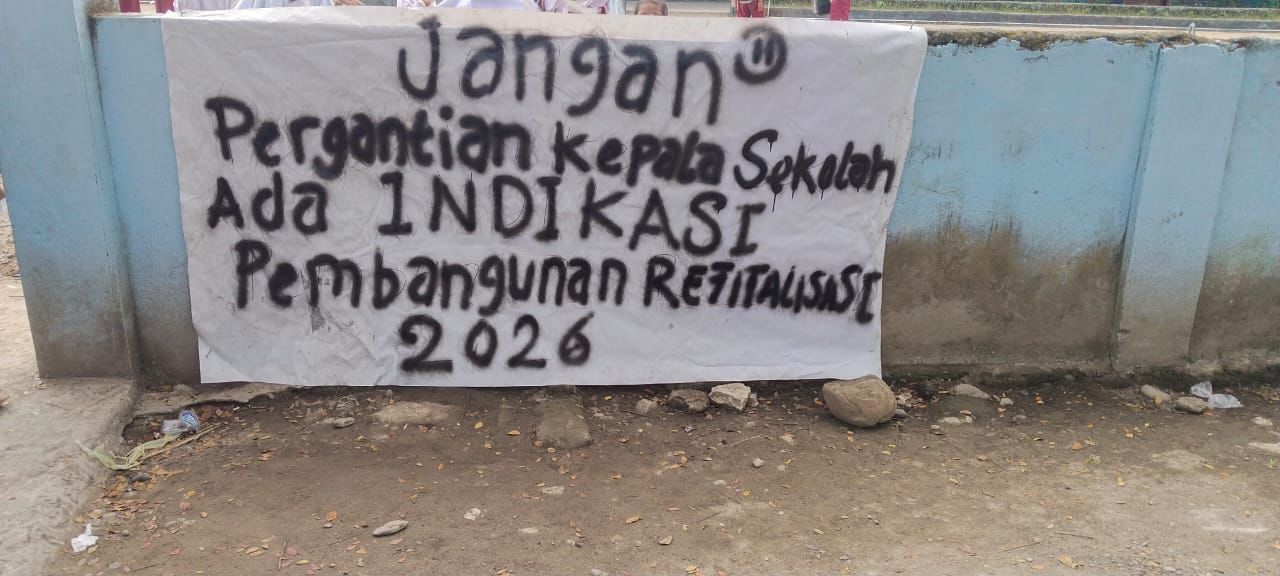 Jangan
Pergantian Kepala Sekolah
Ada INDIKASI
Pembangunan REFITALISASI
2026